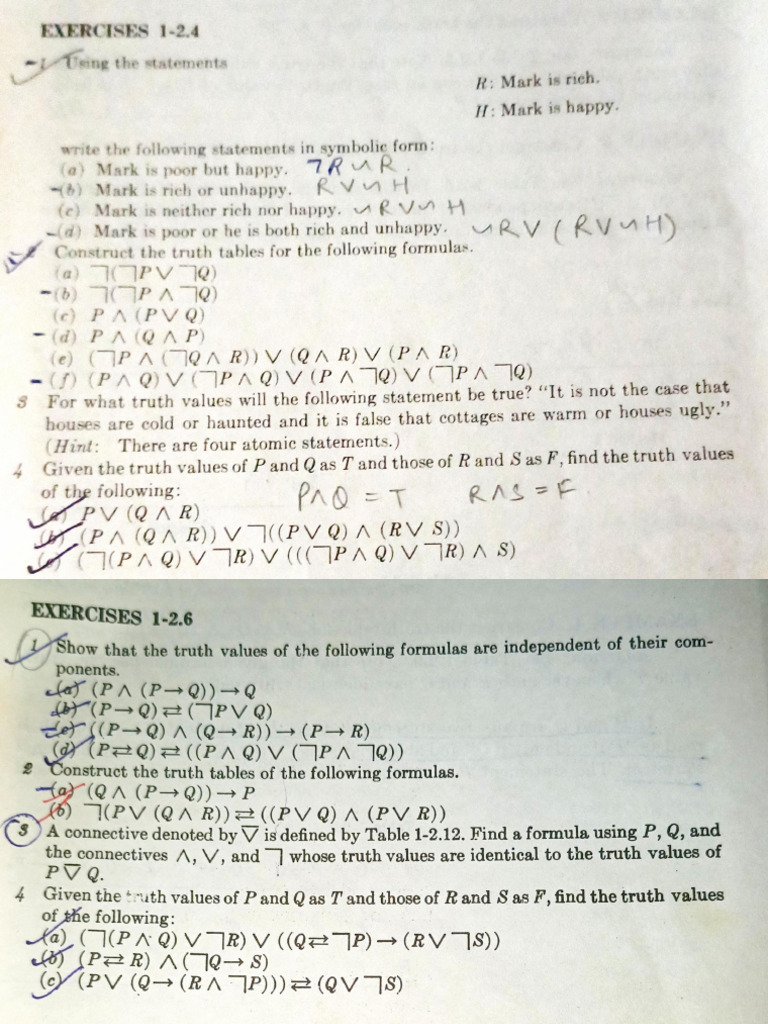 EXERCISES 1-2.4
1 Using the statements
R: Mark is rich.
H: Mark is happy.
write the following statements in symbolic form:
(a) Mark is poor but happy. ⌐R ∽ R.
(b) Mark is rich or unhappy. R V ∽ H
(c) Mark is neither rich nor happy. ∽ R V ∽ H
(d) Mark is poor or he is both rich and unhappy. ∽ R V (R V ∽ H)
2 Construct the truth tables for the following formulas.
(a) ⌐(⌐P ∨ ⌐Q)
(b) ⌐(⌐P ∧ ⌐Q)
(c) P ∧ (P ∨ Q)
(d) P ∧ (Q ∧ P)
(e) (⌐P ∧ (⌐Q ∧ R)) ∨ (Q ∧ R) ∨ (P ∧ R)
(f) (P ∧ Q) ∨ (⌐P ∧ Q) ∨ (P ∧ ⌐Q) ∨ (⌐P ∧ ⌐Q)
3 For what truth values will the following statement be true? “It is not the case that
houses are cold or haunted and it is false that cottages are warm or houses ugly.”
(Hint: There are four atomic statements.)
4 Given the truth values of P and Q as T and those of R and S as F, find the truth values
of the following: P∧Q = T R∧S = F.
(a) P ∨ (Q ∧ R)
(b) (P ∧ (Q ∧ R)) ∨ ⌐((P ∨ Q) ∧ (R ∨ S))
(c) (⌐(P ∧ Q) ∨ ⌐R) ∨ (((⌐P ∧ Q) ∨ ⌐R) ∧ S)
EXERCISES 1-2.6
1 Show that the truth values of the following formulas are independent of their com-
ponents.
(a) (P ∧ (P → Q)) → Q
(b) (P → Q) ⇄ (⌐P ∨ Q)
(c) ((P → Q) ∧ (Q → R)) → (P → R)
(d) (P ⇄ Q) ⇄ ((P ∧ Q) ∨ (⌐P ∧ ⌐Q))
2 Construct the truth tables of the following formulas.
(a) (Q ∧ (P → Q)) → P
(b) ⌐(P ∨ (Q ∧ R)) ⇄ ((P ∨ Q) ∧ (P ∨ R))
3 A connective denoted by ⊽ is defined by Table 1-2.12. Find a formula using P, Q, and
the connectives ∧, ∨, and ⌐ whose truth values are identical to the truth values of
P ⊽ Q.
4 Given the truth values of P and Q as T and those of R and S as F, find the truth values
of the following:
(a) (⌐(P ∧ Q) ∨ ⌐R) ∨ ((Q ⇄ ⌐P) → (R ∨ ⌐S))
(b) (P ⇄ R) ∧ (⌐Q → S)
(c) (P ∨ (Q → (R ∧ ⌐P))) ⇄ (Q ∨ ⌐S)